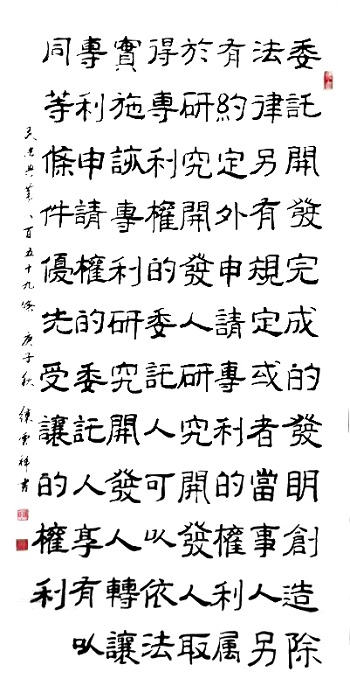 委託開發完成的發明創造除
法律另有規定或者當事人另
有約定外申請專利的權利属
於研究開發人研究開發人取
得專利權的委託人可以依法
實施該專利研究開發人轉讓
專利申請權的委託人享有以
同等條件優先受讓的權利
民法典第八百五十九條 庚子秋 雲祥書